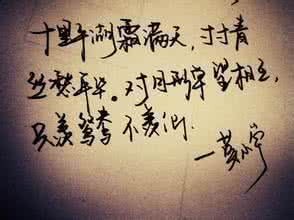 十里平湖霜满天，寸寸青
丝愁年华。对月形单望相互，
只羡鸳鸯不羡仙。